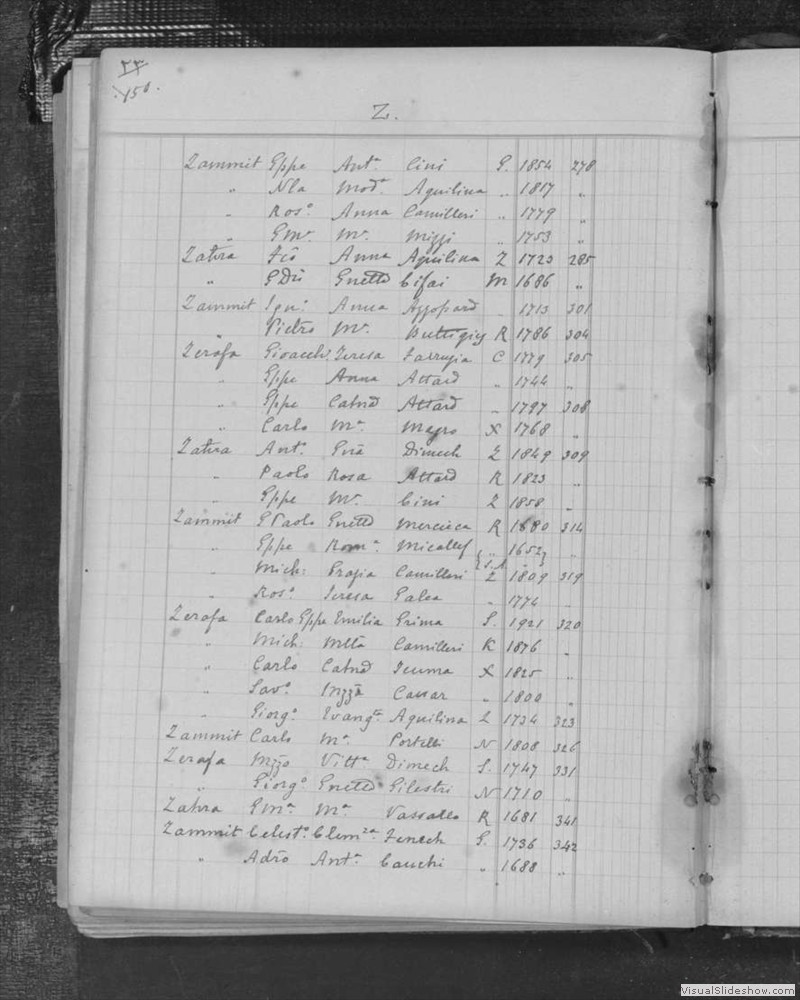 150.
Z.
Zammit Gppe Ant.a Cini G. 1854 278
" Nla Mod.a Aquilina " 1817 "
" Ros.o Anna Camilleri " 1779 "
" G M.a M.a Mizzi " 1753 "
Zahra Fco Anna Aquilina Z 1723 285
" Gnetta Cifai M 1686 "
Zammit Ign.o Anna Azzopard " 1713 301
" Pietro M.a Buttigieg R 1786 304
Zerafa Gioacch. Teresa Farrugia C 1779 305
" Gppe Anna Attard " 1744 "
" Gppe Catnd Attard " 1797 308
" Carlo M.a Magro X 1768 "
Zahra Ant.o Dimech Z 1849 309
" Paolo Rosa Attard R 1823 "
" Gppe M.a Cini Z 1858 "
Zammit G Paolo Gnetta Mercieca R 1680 314
" Gppe Rom.a Micallef " 1652 "
" Mich: Grazia Camilleri Z 1809 319
" Ros.o Teresa Galea " 1774 "
Zerafa Carlo Gppe Emilia Grima S. 1921 320
" Mich: Mlta Camilleri K 1876 "
" Carlo Catnd Xcuma X 1825 "
" Sav.o Caesar " 1800 "
" Giorg.o Evang.ta Aquilina Z 1734 323
Zammit Carlo M.a Portelli N 1808 326
Zerafa Mzzo Vitt.a Dimech S. 1747 331
" Giorg.o Gnetta Gilestri N 1710 "
Zahra G M.a M.a Vassallo R 1681 341
Zammit Celest.o Clem.za Zenech G. 1736 342
" Adrio Ant.a Cauchi " 1688 "
VisualSlideshow.com